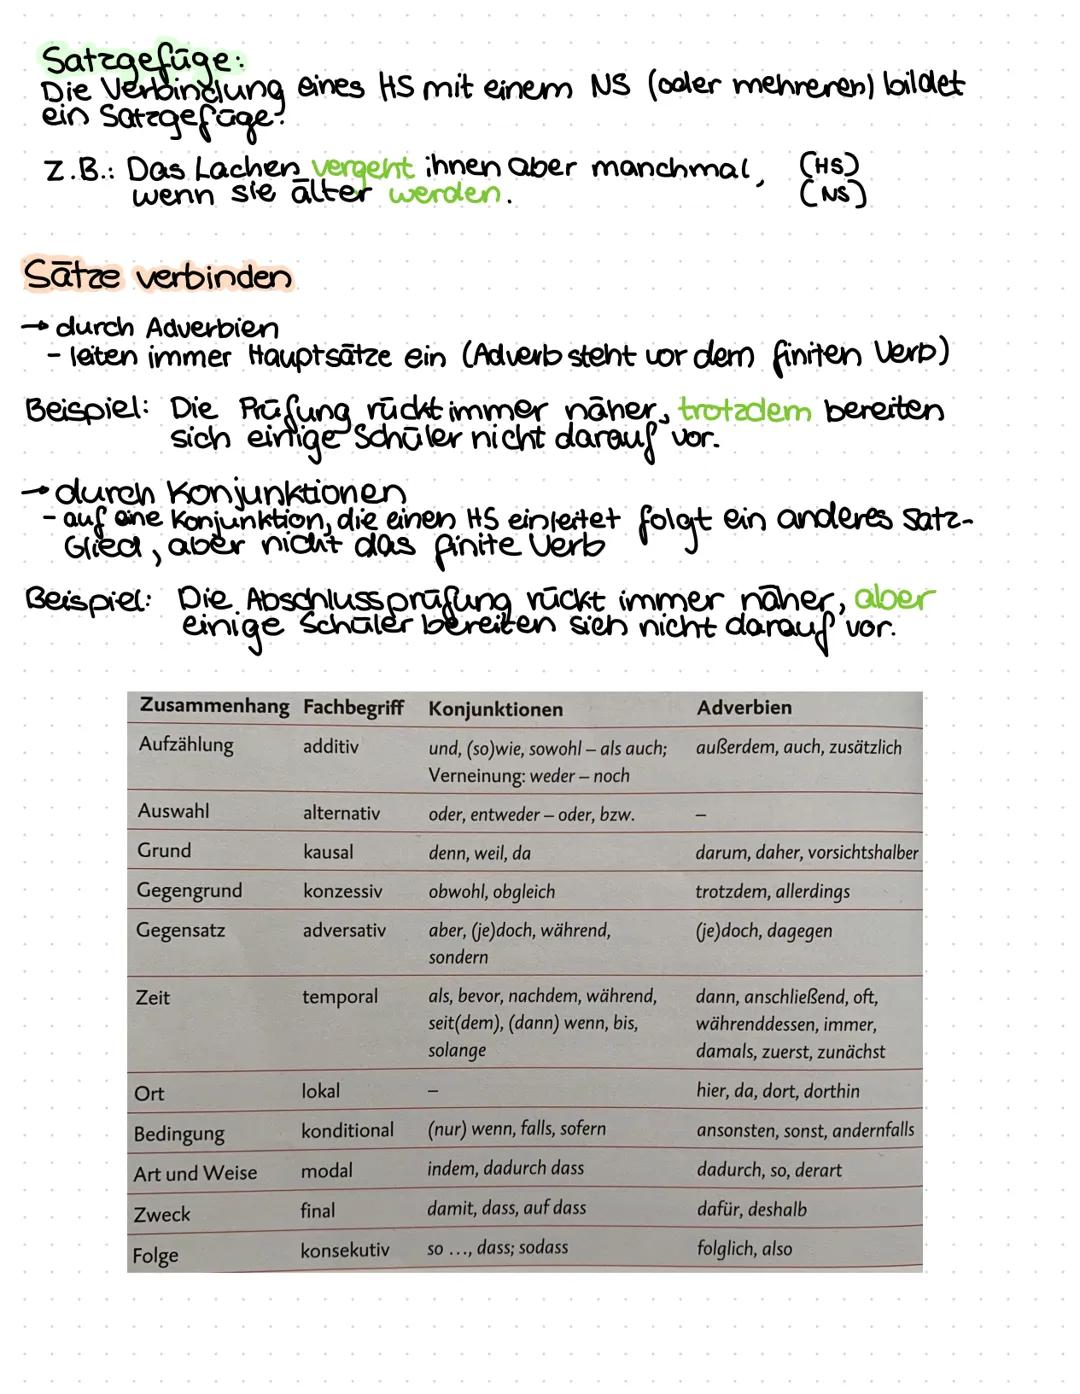 Satzgefüge:
Die Verbindung eines HS mit einem NS (oder mehreren) bildet
ein Satzgefüge.
Z.B.: Das Lachen vergeht ihnen aber manchmal, (HS)
wenn sie älter werden. (NS)
Sätze verbinden
→ durch Adverbien
- leiten immer Hauptsätze ein (Adverb steht vor dem finiten Verb)
Beispiel: Die Prüfung rückt immer näher, trotzdem bereiten
sich einige Schüler nicht darauf vor.
→ durch Konjunktionen
- auf eine Konjunktion, die einen HS einleitet folgt ein anderes Satz-
Glied, aber nicht das finite Verb
Beispiel: Die Abschlussprüfung rückt immer näher, aber
einige Schüler bereiten sich nicht darauf vor.
Zusammenhang Fachbegriff Konjunktionen Adverbien
Aufzählung additiv und, (so)wie, sowohl – als auch; außerdem, auch, zusätzlich
Verneinung: weder – noch
Auswahl alternativ oder, entweder – oder, bzw. –
Grund kausal denn, weil, da darum, daher, vorsichtshalber
Gegengrund konzessiv obwohl, obgleich trotzdem, allerdings
Gegensatz adversativ aber, (je)doch, während, (je)doch, dagegen
sondern
Zeit temporal als, bevor, nachdem, während, dann, anschließend, oft,
seit(dem), (dann) wenn, bis, währenddessen, immer,
solange damals, zuerst, zunächst
Ort lokal – hier, da, dort, dorthin
Bedingung konditional (nur) wenn, falls, sofern ansonsten, sonst, andernfalls
Art und Weise modal indem, dadurch dass dadurch, so, derart
Zweck final damit, dass, auf dass dafür, deshalb
Folge konsekutiv so ..., dass; sodass folglich, also